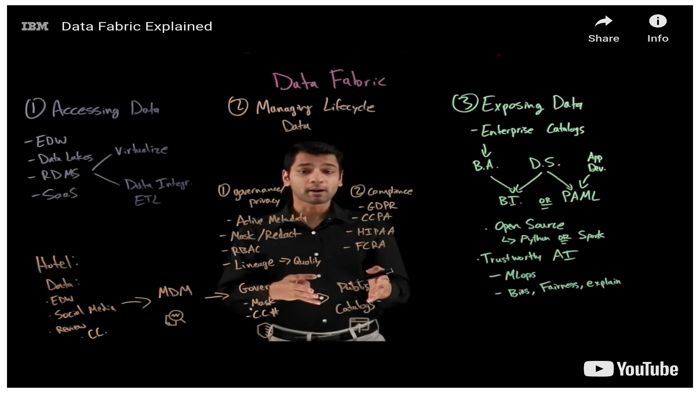 IBM
Data Fabric Explained
Share
Info
Data Fabric
① Accessing Data
- EDW
- Data Lakes
- RDMS
- SaaS
Virtualize
Data Integr.
ETL
② Managing Lifecycle
Data
① governance/
privacy
- Active Metadata
- Mask/Redact
- RBAC
- Lineage → Quality
② Compliance
- GDPR
- CCPA
- HIPAA
- FCRA
③ Exposing Data
- Enterprise Catalogs
B.A.
D.S.
App
Dev.
BI. OR PAML
• Open Source
↳ Python OR Spark
• Trustworthy AI
- MLops
- Bias, Fairness, explain
Hotel:
Data:
• EDW
• Social Media
• Review
• CC.
→ MDM →
Gover
- Mask
- CC#
Publis
Catalogs
YouTube